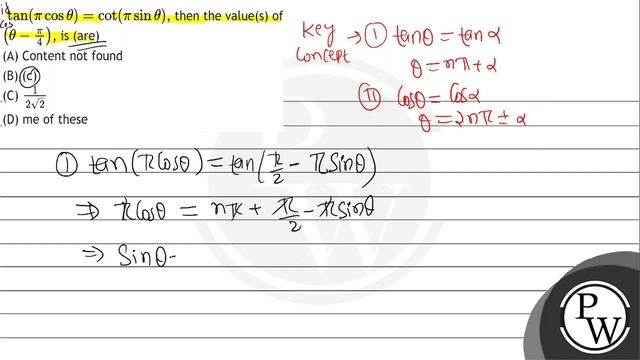 tan(π cos θ) = cot(π sin θ), then the value(s) of
cos
(θ − π/4), is (are)
(A) Content not found
(B) (c)
(C) 1/2√2
(D) me of these
Key Concept → ① tanθ = tanα
θ = nπ + α
② cosθ = cosα
θ = 2nπ ± α
① tan(πcosθ) = tan(π/2 − πsinθ)
⇒ πcosθ = nπ + π/2 − πsinθ
⇒ sinθ
PW
PW